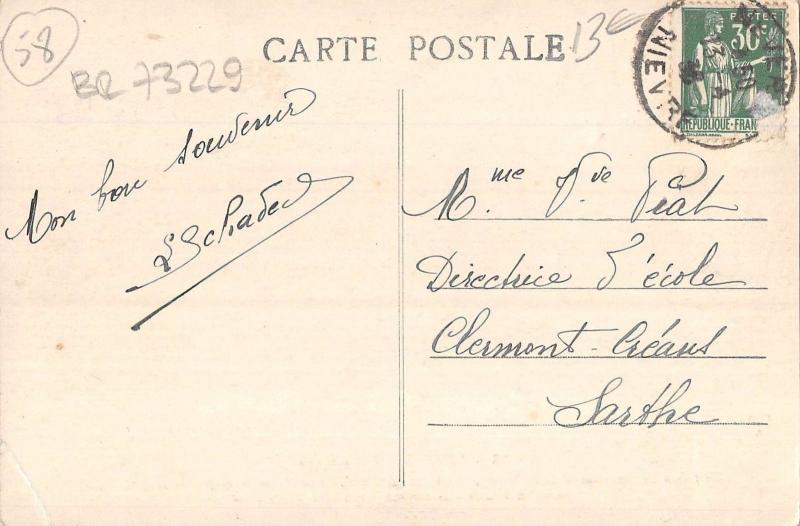 58
BR 73229
CARTE POSTALE
13€
POSTES
30c
REPUBLIQUE-FRAN
NIEVRE
Mon bon souvenir
Mme Vve Piat
Directrice d'école
Clermont-Créans
Sarthe